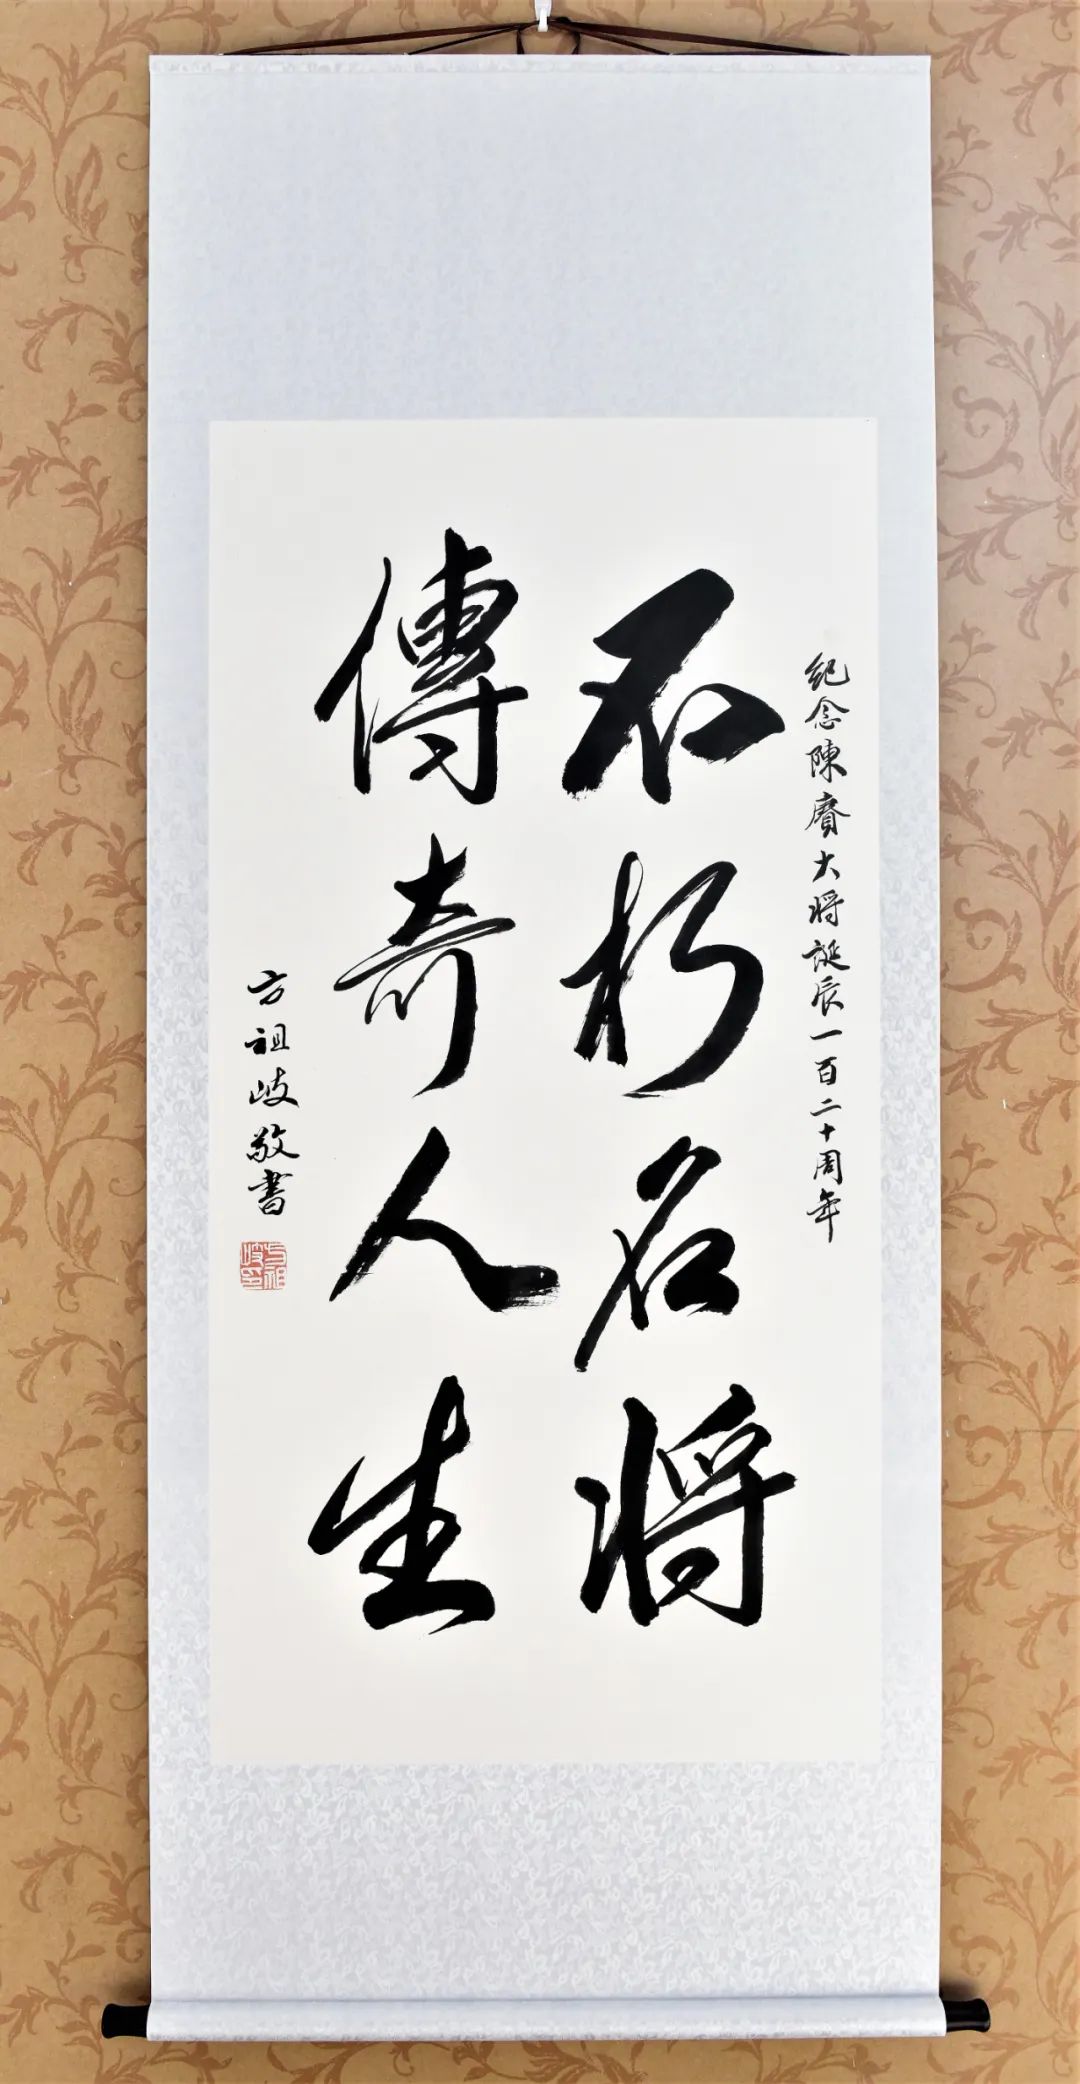 纪念陳賡大将誕辰一百二十周年
不朽名将
傳奇人生
方祖岐敬書
方祖岐印